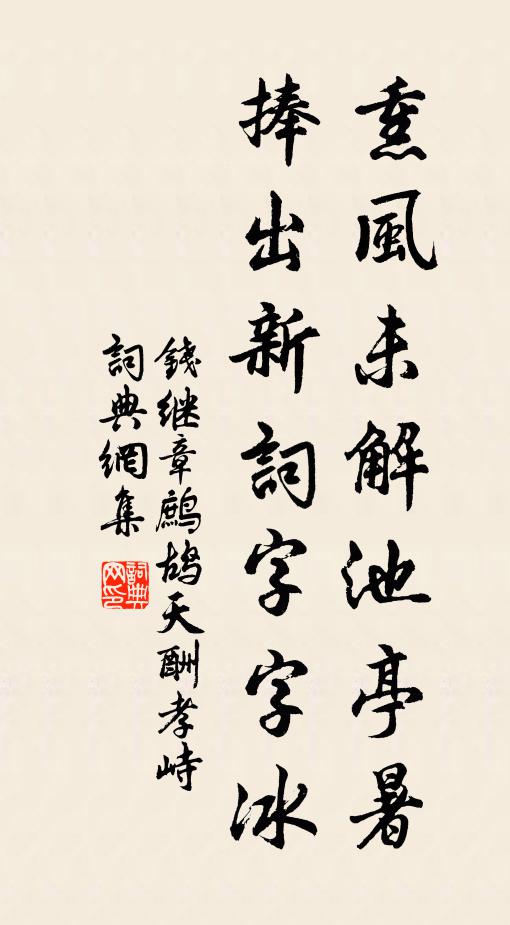 熏風未解池亭暑
捧出新詞字字冰
錢继章鷓鴣天酬孝峙
詞典網集
詞典网印